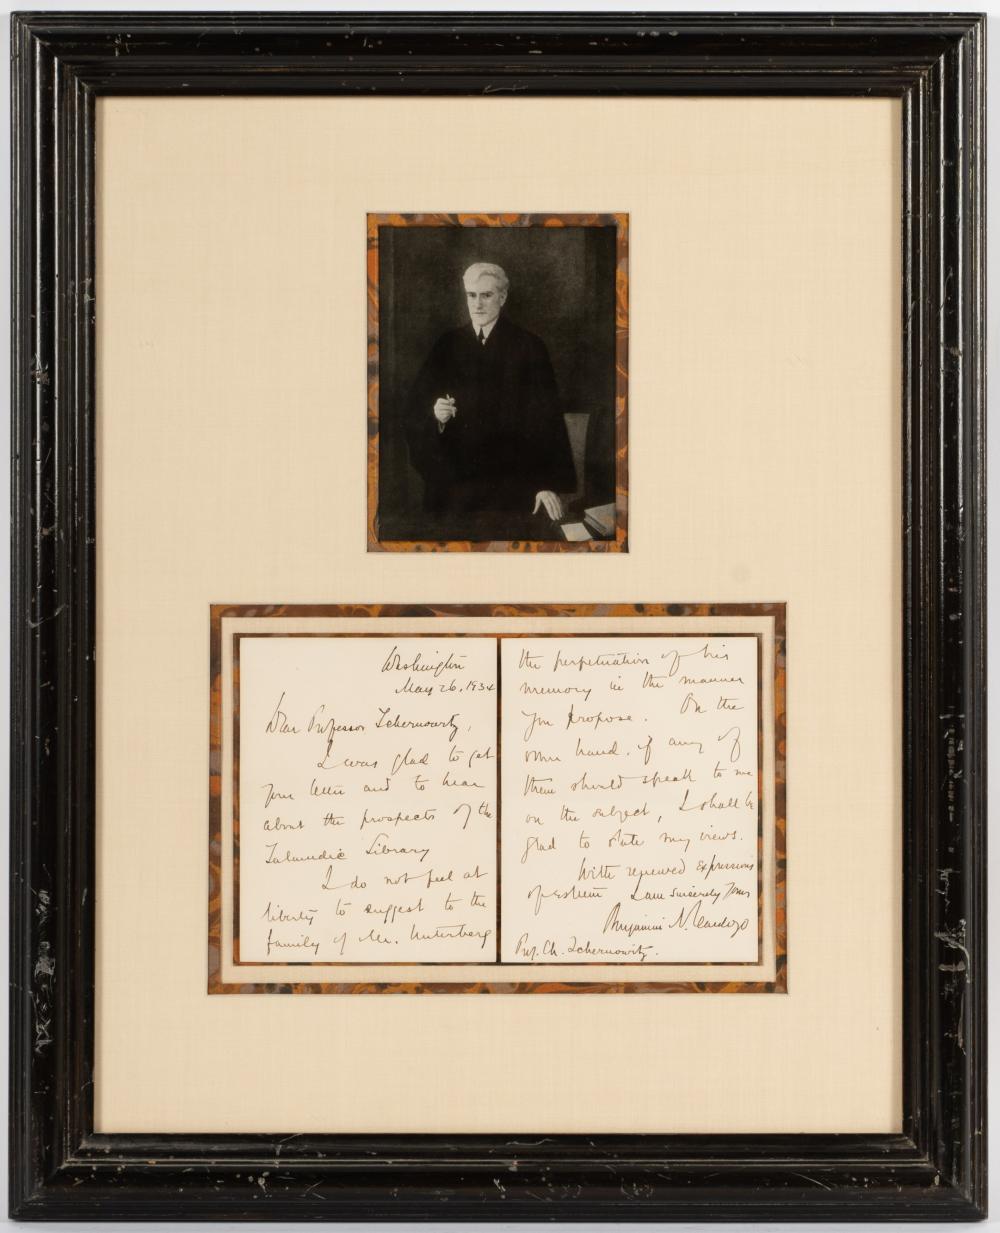 Washington
May 26, 1934
Dear Professor Tchernowitz,
I was glad to get
your letter and to hear
about the prospects of the
Talmudic Library
I do not feel at
liberty to suggest to the
family of Mr. Unterberg
the perpetuation of his
memory in the manner
you propose. On the
other hand, if any of
them should speak to me
on the subject, I shall be
glad to state my views.
With renewed expressions
of esteem I am sincerely yours
Benjamin N. Cardozo
Prof. Ch. Tchernowitz.